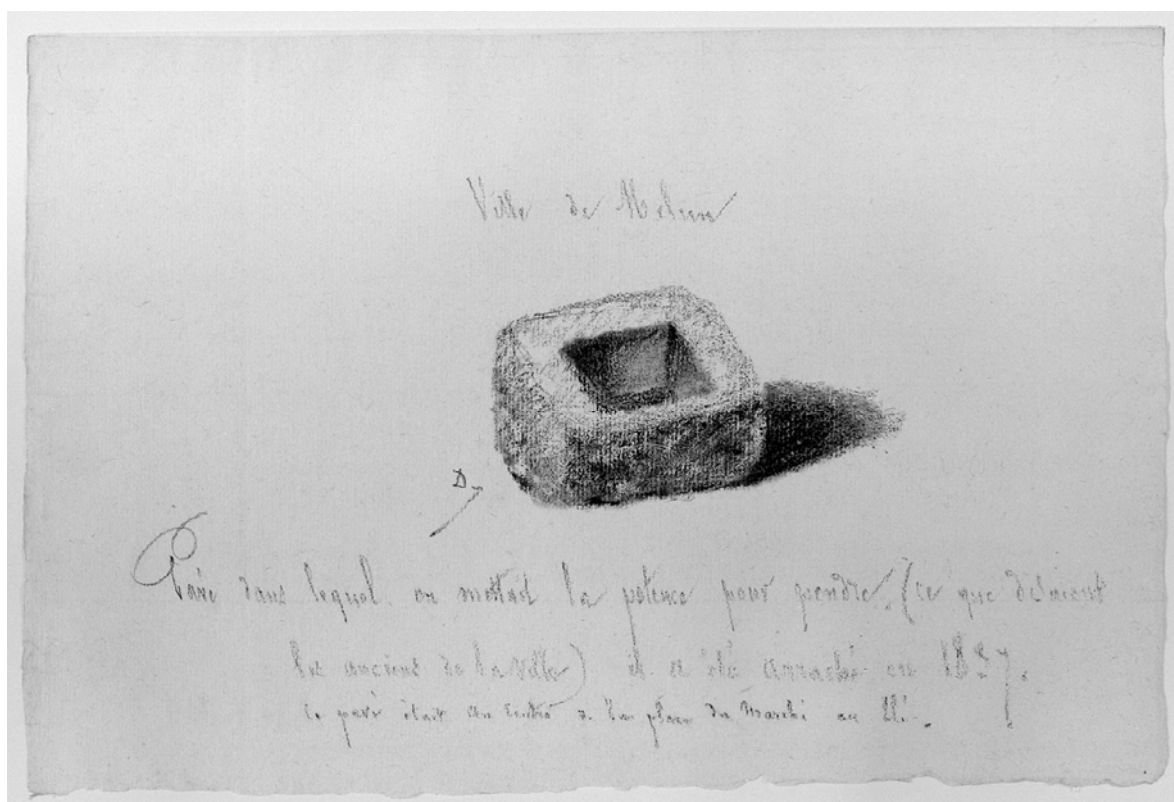 Ville de Melun
D
Pavé dans lequel on mettait la potence pour pendre. (ce que disaient
les anciens de la ville) il a été arraché en 18
ce pavé était au centre de la place du Marché au blé.